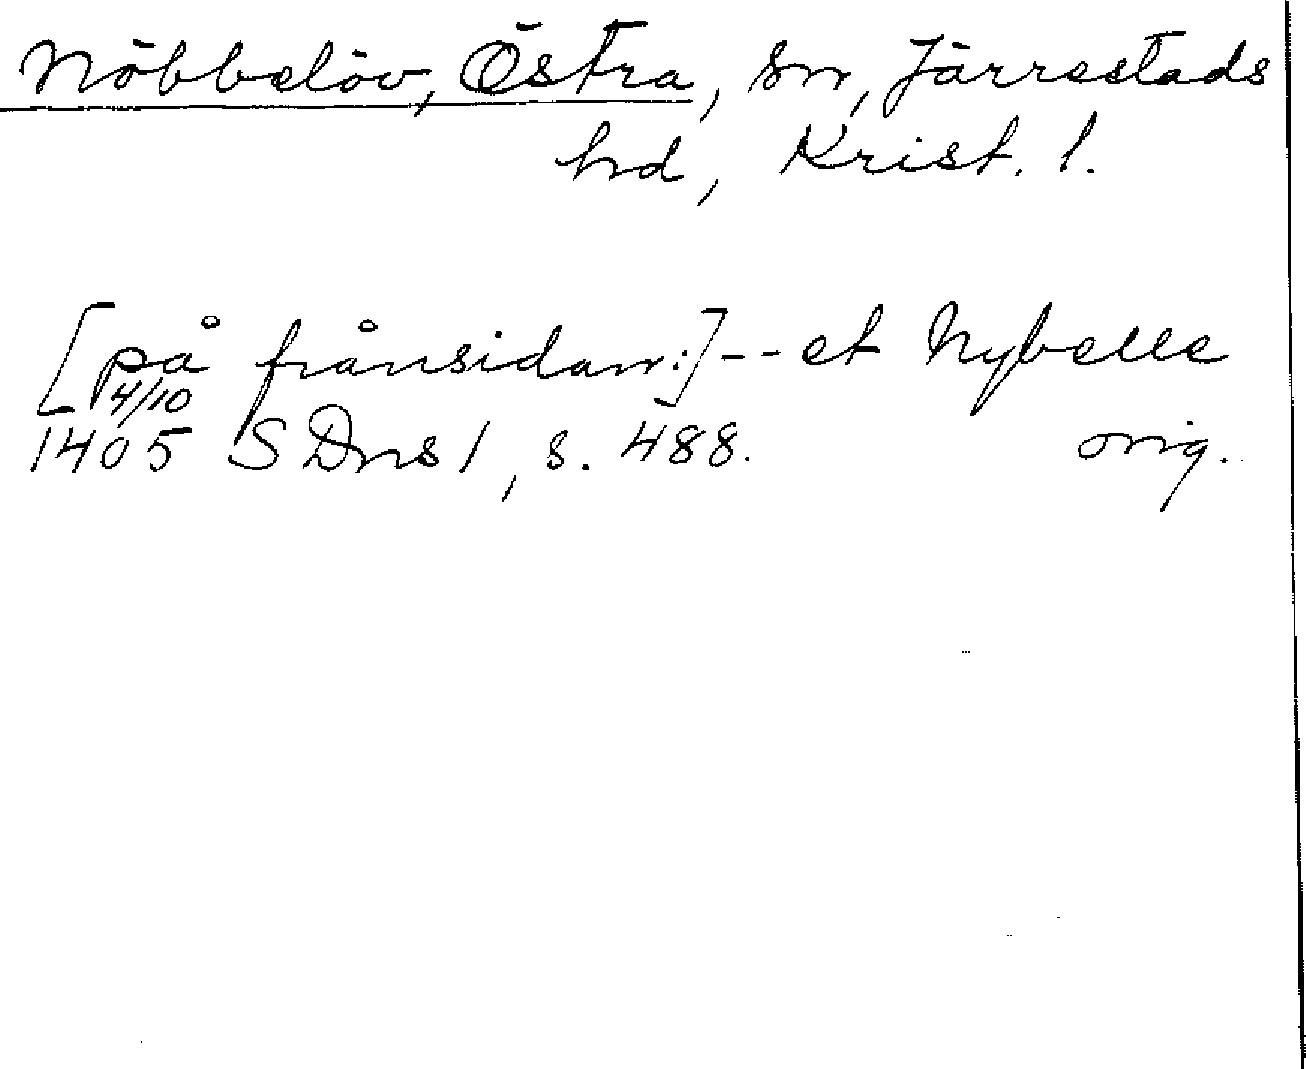 Nöbbelöv, Östra, sn, Järrestads
hd, Krist. l.
[på frånsidan:] -- et Nybelle
4/10
1405 SDns 1, s. 488. orig.